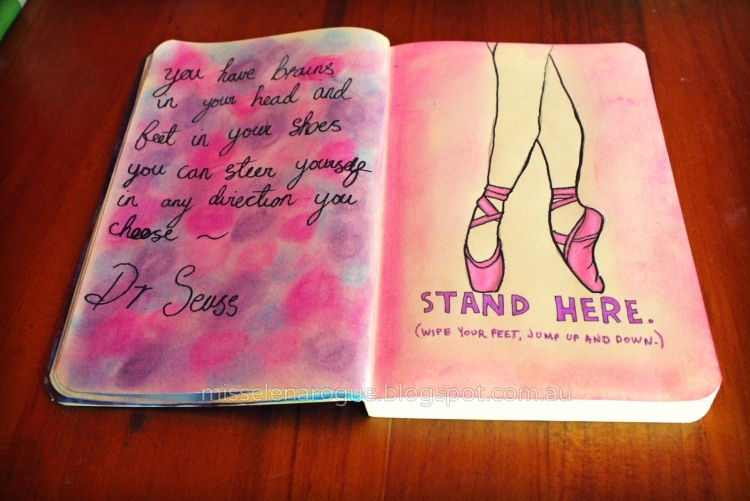 you have brains
in your head and
feet in your shoes
you can steer yourself
in any direction you
choose ~
Dr Seuss
STAND HERE.
(WIPE YOUR FEET, JUMP UP AND DOWN.)
misselenarogue.blogspot.com.au